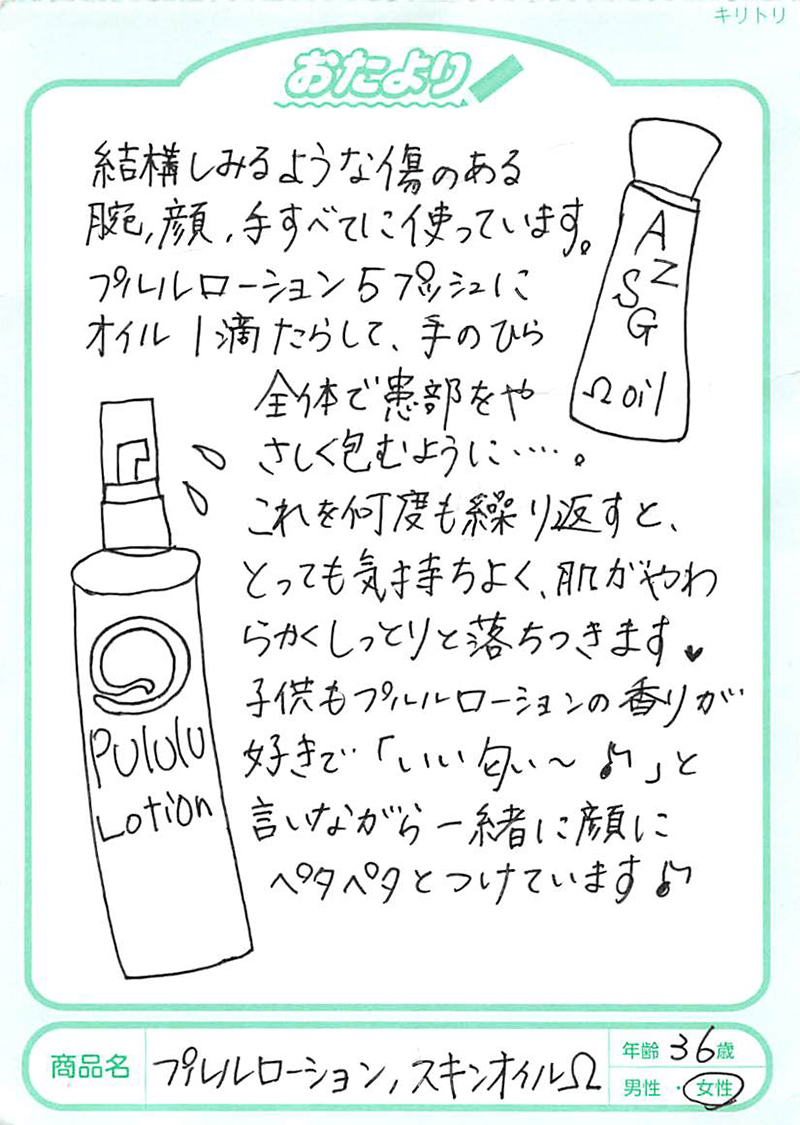 キリトリ
おたより
結構しみるような傷のある
腕,顔,手すべてに使っています。
プルルローション5プッシュに
オイル1滴たらして、手のひら
全体で患部をや
さしく包むように‥‥。
これを何度も繰り返すと、
とっても気持ちよく、肌がやわ
らかくしっとりと落ちつきます♥
子供もプルルローションの香りが
好きで「いい匂い〜♪」と
言いながら一緒に顔に
ペタペタとつけています♪
AZ
SG
Ωoil
Pululu
Lotion
商品名 プルルローション,スキンオイルΩ
年齢 36歳
男性・女性